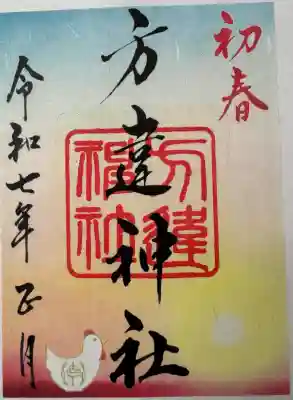 初春
方違神社
方違
神社
令和七年正月